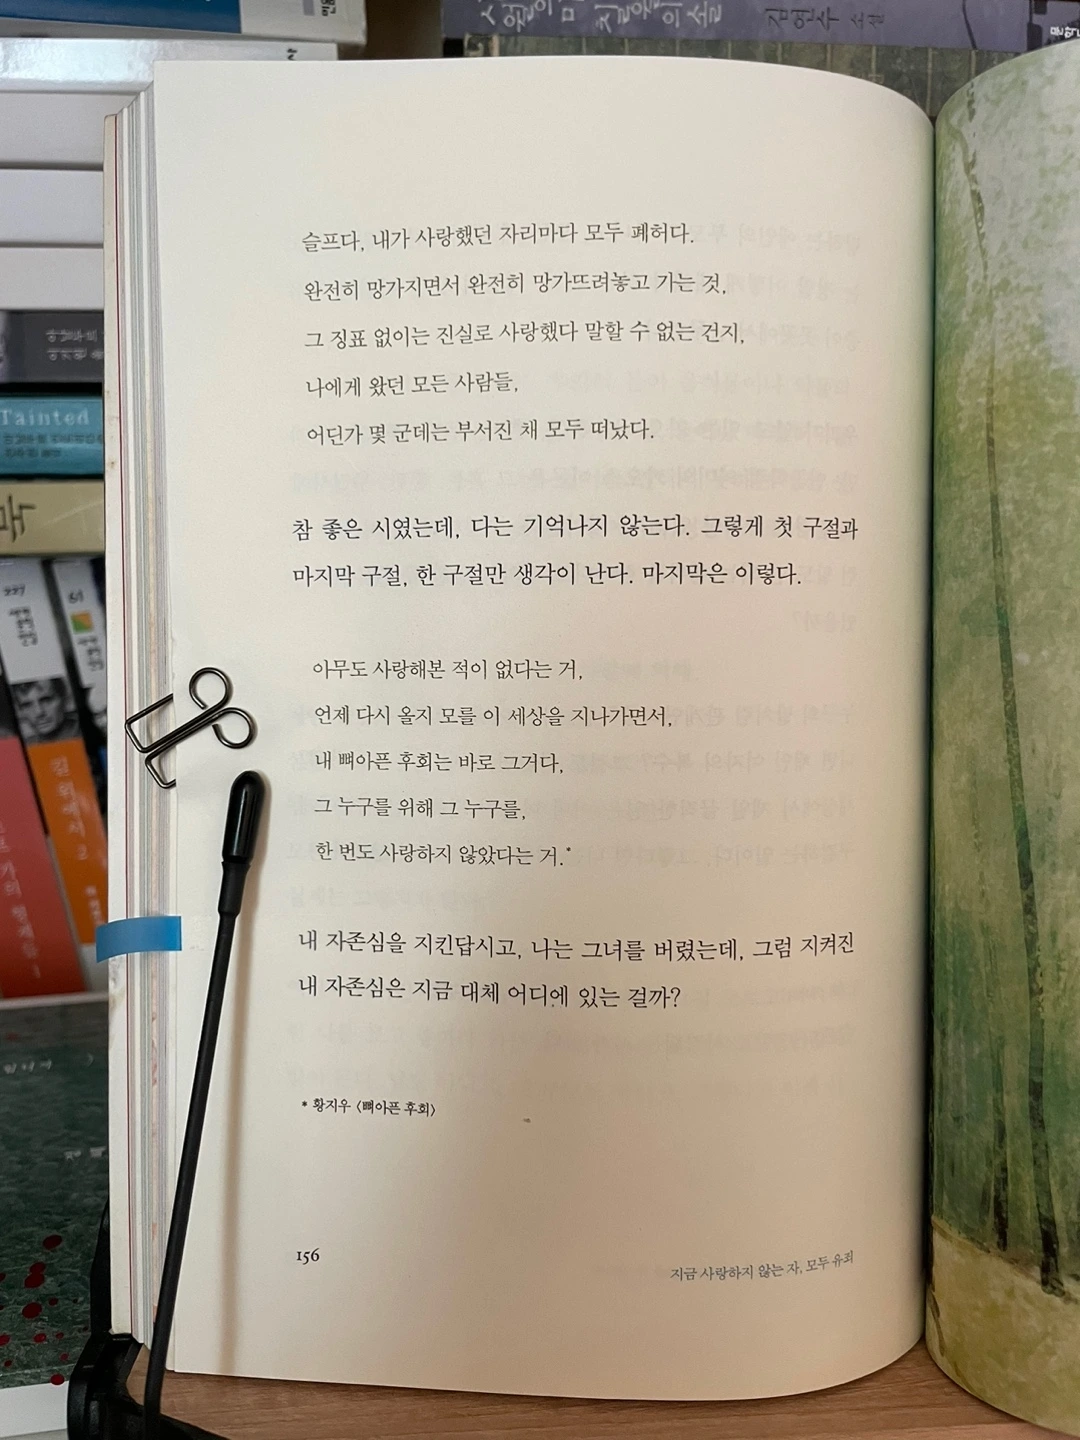 김연수 소설
Tainted
227
61
슬프다, 내가 사랑했던 자리마다 모두 폐허다.
완전히 망가지면서 완전히 망가뜨려놓고 가는 것,
그 징표 없이는 진실로 사랑했다 말할 수 없는 건지,
나에게 왔던 모든 사람들,
어딘가 몇 군데는 부서진 채 모두 떠났다.
참 좋은 시였는데, 다는 기억나지 않는다. 그렇게 첫 구절과
마지막 구절, 한 구절만 생각이 난다. 마지막은 이렇다.
아무도 사랑해본 적이 없다는 거,
언제 다시 올지 모를 이 세상을 지나가면서,
내 뼈아픈 후회는 바로 그거다,
그 누구를 위해 그 누구를,
한 번도 사랑하지 않았다는 거.*
내 자존심을 지킨답시고, 나는 그녀를 버렸는데, 그럼 지켜진
내 자존심은 지금 대체 어디에 있는 걸까?
* 황지우 〈뼈아픈 후회〉
156
지금 사랑하지 않는 자, 모두 유죄